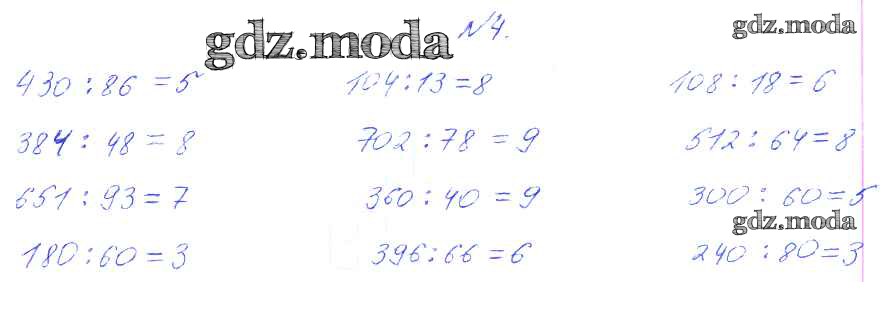 gdz.moda №4. gdz.moda
430 : 86 = 5 104 : 13 = 8 108 : 18 = 6
384 : 48 = 8 702 : 78 = 9 512 : 64 = 8
651 : 93 = 7 360 : 40 = 9 300 : 60 = 5
gdz.moda
180 : 60 = 3 396 : 66 = 6 240 : 80 = 3